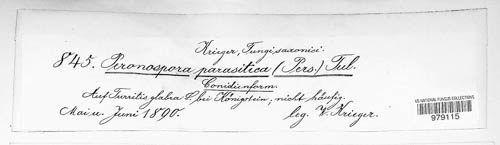 Krieger, Fungi saxonici.
845. Peronospora parasitica (Pers.) Tul.
Conidienform.
Auf Turritis glabra L. bei Königstein, nicht häufig.
Mai u. Juni 1890. leg. W. Krieger.
US NATIONAL FUNGUS COLLECTIONS
979115